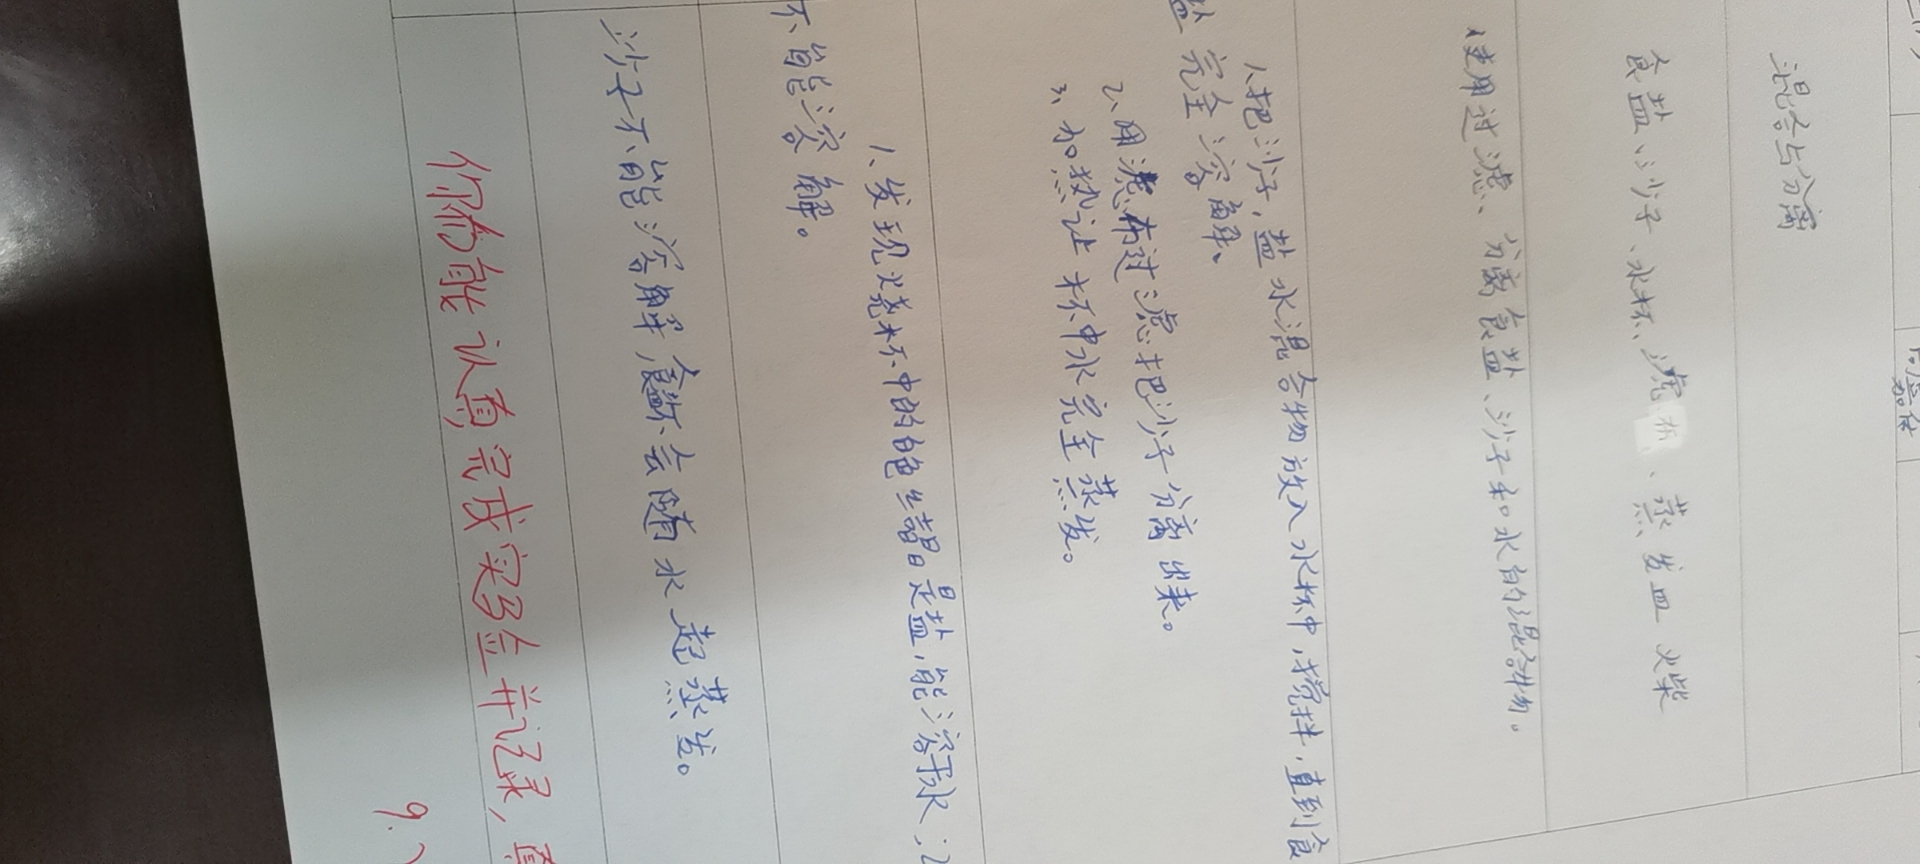 混合与分离
食盐、沙子、水杯、滤布、蒸发皿 火柴
使用过滤、分离食盐、沙子和水的混合物。
1、把沙子,盐水混合物放入水杯中,搅拌,直到食
盐完全溶解、
2、用滤布过滤把沙子分离出来。
3、加热让杯中水完全蒸发。
1、发现烧杯中的白色结晶是盐,能溶于水;
不能溶解。
沙子不能溶解,食盐不会随水一起蒸发。
你们能认真完成实验并记录,
9.